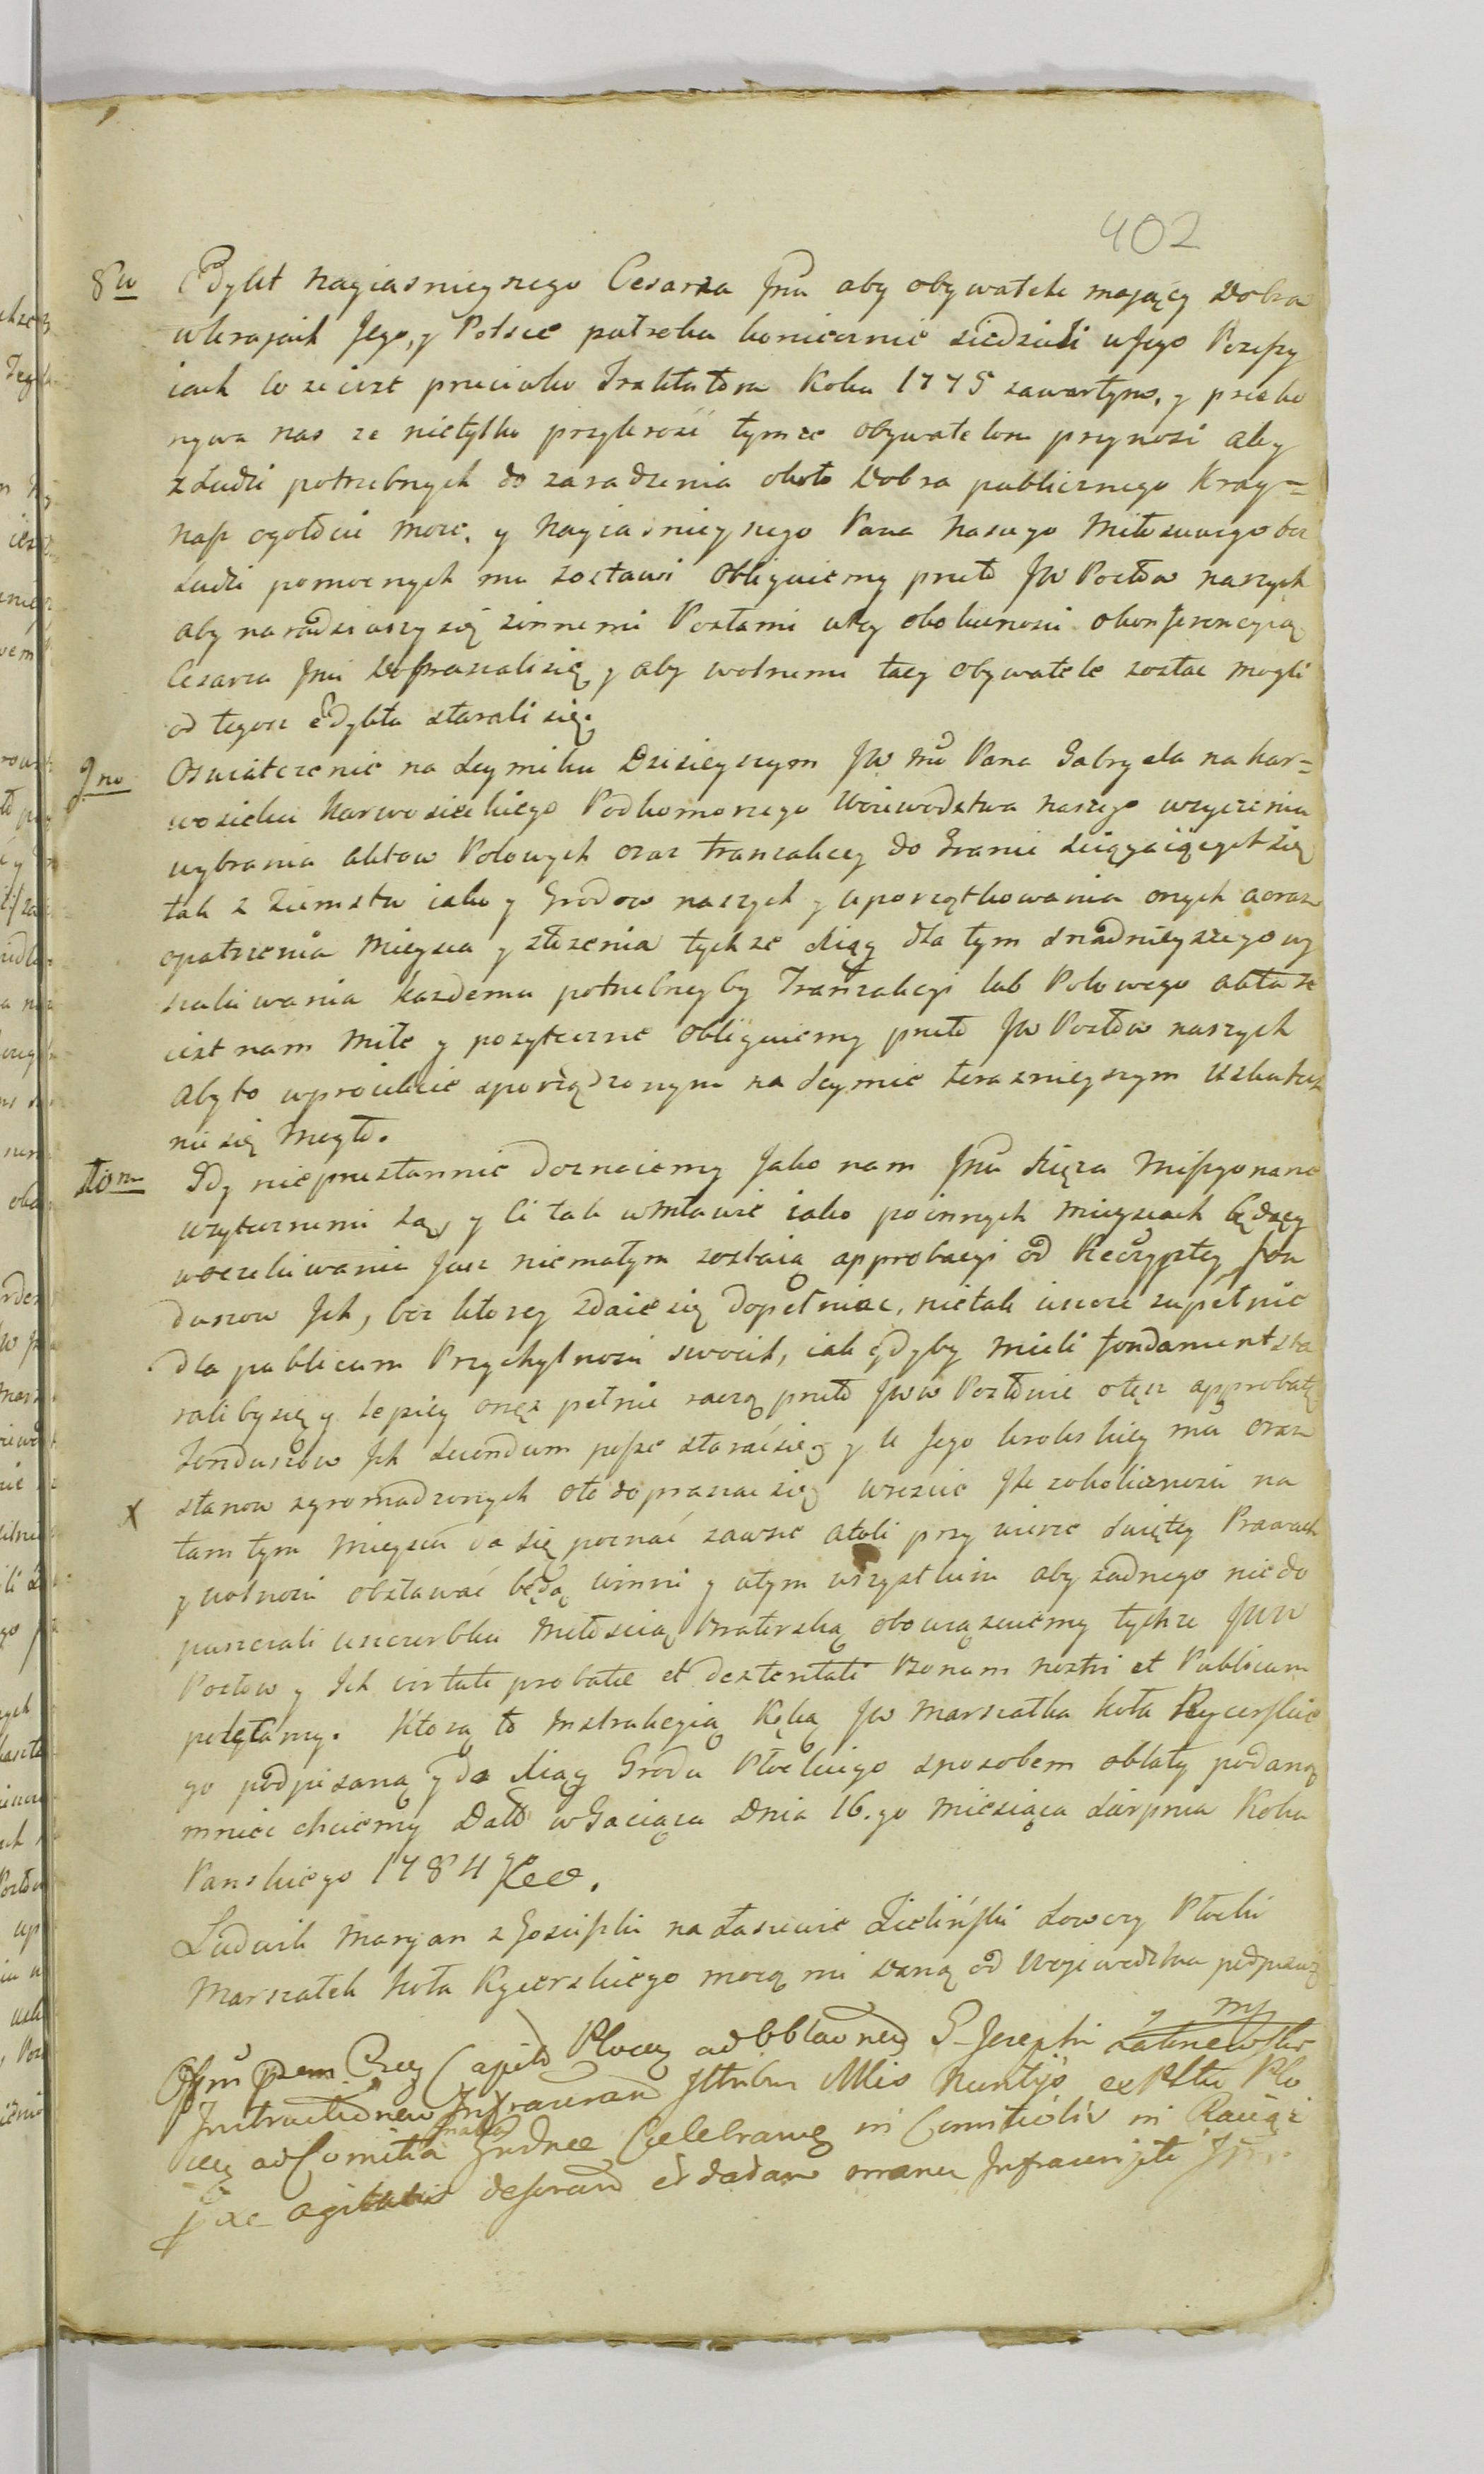 402
8vo Edykt Nayiasnieyszego Cesarza Jmci aby obywatele mający Dobra
wkrajach Jego, y Polsce potrzeba koniecznie siedzieli w Jego Possessy
iach co ze iest przeciwko Traktatom Roku 1775 zawartym, y przeko
nywa nas ze nietylko przykrość tymze obywatelom przynosi ale y
z Ludzi potrzebnych do zaradzenia około Dobra publicznego Kray=
nasz ogołocić może, y Nayiasnieyszego Pana Naszego Miłosciwego bez
Ludzi pomocnych mu zostawi Obliguiemy przeto JW Posłow naszych
aby naradziwszy się zinnemi Posłami w tey okolicznosci o konferencyią
Cesarza Jmci dopraszali się, y aby wolnemi tacy obywatele zostac mogli
od tegosz Edyktu starali się.
9no Oswiatczenie na Seymiku Dzisieyszym JW Pana Gabryela na Kar=
wosieku Karwosieckiego Podkomorzego Woiewodztwa naszego wzyczenia
wybrania Aktow Polowych oraz tranzakcy do Granic sciągaiących się
tak z Ziemstw iako y Grodow naszych y uporządkowania onych a oraz
opatrzenia Mieysca y złozenia tychze Xiąg dla tym snadnieyszego wy
szukiwania kazdemu potrzebney by Tranzakcyi lub Polowego Aktu ze
iest nam Miłe y pozyteczne Obliguiemy przeto JW Posłow naszych
aby to w proiekcie sporządzonym na Seymie terazniejszym Uskutecz
nić się mogło.
10mo Gdy nieprzestannie Doznaiemy Jako nam Jmć Xięza Missyonarze
uzytecznemi są, y Ci tak w Mławie iako po innych mieyscach będący
w oczekiwaniu Jusz niemałym zostaią approbacyi od Rzeczypltey fon
duszow Jch, bez ktorey zdaie się dopełniac, nietak ieszcze zupełnie
dla publicum Przychylnosci swoich, iak gdyby mieli fondament sta
raliby się y lepiey onęz pełnić raczą przeto JWW Posłowie o tęsz approbatę
Fonduszow Jch secundum posse starać się y u Jego Krolewskiey Mci oraz
x stanow zgromadzonych oto dopraszac się wreście Jle z okolicznosci na
tam tym mieyscu da się poznać zawsze atoli przy wierze Świętey Prawach
y wolnosci obstawać będą winni y w tym wszystkim aby zadnego niedo
puszczali uszczerbku Miłoscią Braterską obowiązuiemy tychze JWW
Posłow y Jch virtuti probatae et dexteritati Bonum nostri et Publicum
polecamy. Ktorą to Instrukcyią Ręką JW Marszałka koła Rycerskie
go podpisaną y do Xiąg Grodu Płockiego sposobem oblaty podaną
mieć chcemy Datt w Raciązu Dnia 16.go Miesiąca Sierpnia Roku
Panskiego 1784
Ludwik Maryan z Gosciska na Łaszewie Zieliński Łowczy Płocki
Marszałek koła Rycerskiego mocą mi daną od Woiewodztwa podpisuię
mp